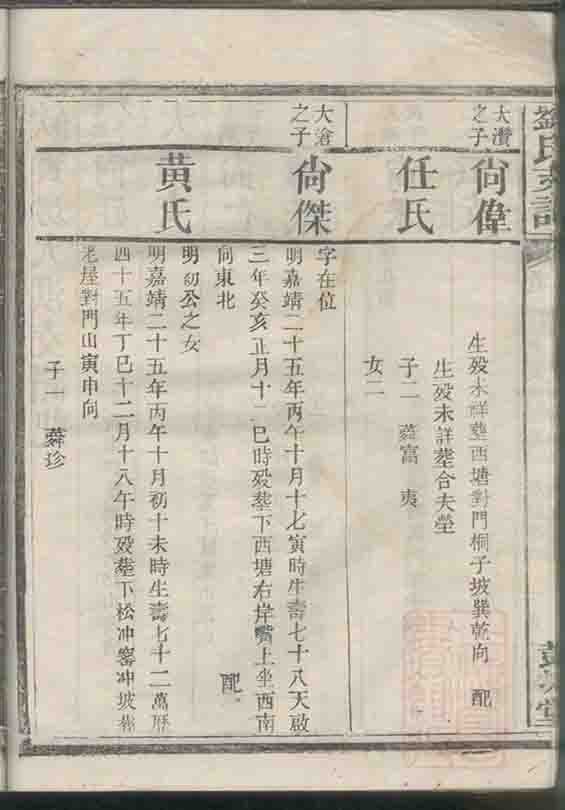 劉氏支譜
大瓚之子
尙偉
生殁未詳塟西塘對門桐子坡巽乾向 配
任氏
生殁未詳塟合夫塋
子二 蕣富 夷
女二
大滄之子
尙傑
字在位
明嘉靖二十五年丙午十月十七寅時生壽七十八天啟
三年癸亥正月十二巳時殁塟下西塘右岸嘴上坐西南
向東北 配
黃氏
明初公之女
明嘉靖二十五年丙午十月初十未時生壽七十二萬厯
四十五年丁巳十二月十八午時殁塟下松冲窰冲坡
老屋對門山寅申向
子一 蕣珍
堂